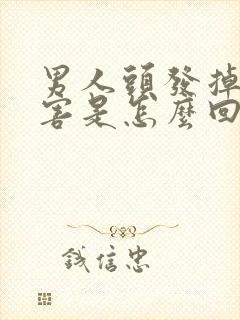 男人頭發掉
害是怎麼回
錢信忠